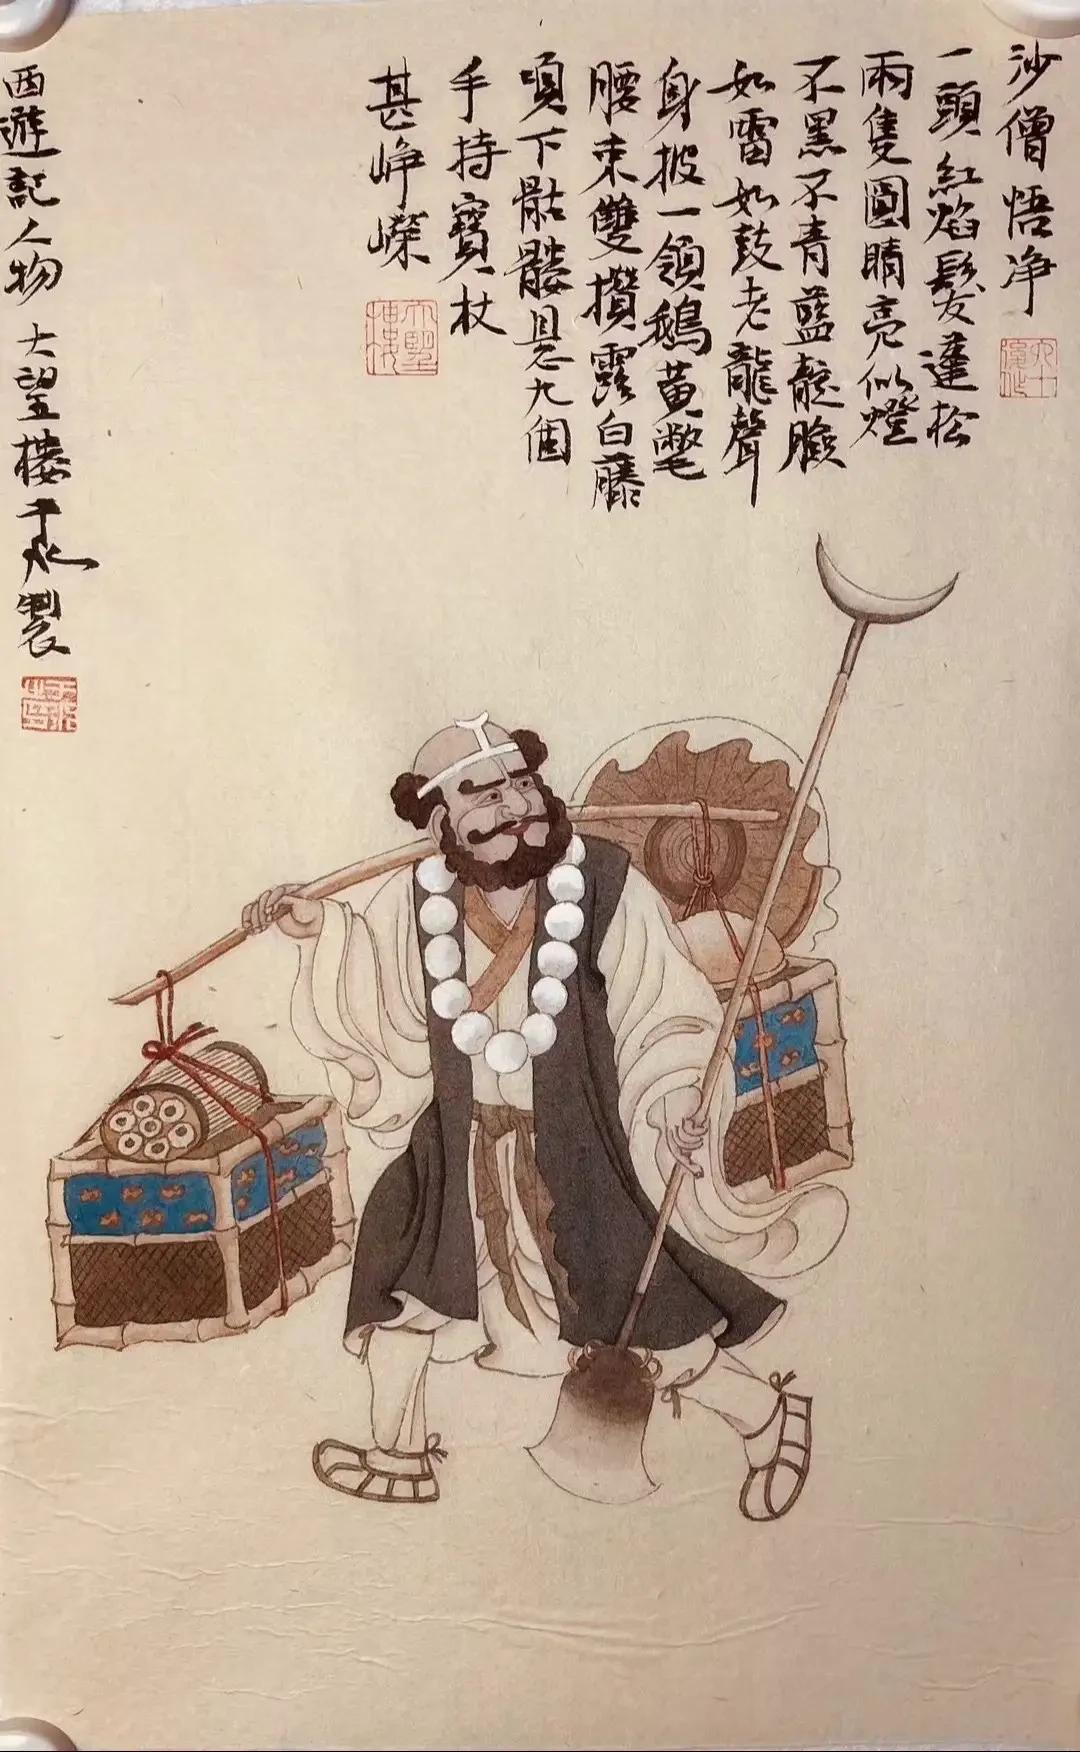 沙僧悟净
一頭紅焰髮蓬松
兩隻圓睛亮似燈
不黑不青藍靛臉
如雷如鼓老龍聲
身披一領鵝黃氅
腰束雙攢露白藤
項下骷髏悬九個
手持寶杖
甚崢嶸
西遊記人物 大望樓
製